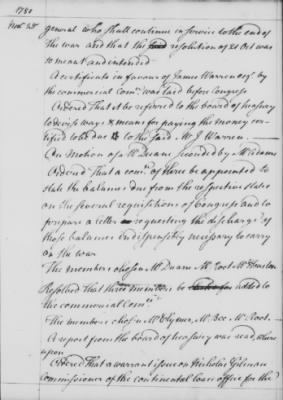 1780
Nov. 28
general who shall continue in service to the end of
the war and that the resolution of 21 Oct was
so meant and intended
A certificate in favour of James Warren esqr. by
the commercial Comee. was laid before Congress
Ordered That it be referred to the board of treasury
to devise ways & means for paying the money cer-
tified to be due to the said Mr J Warren.
On Motion of Mr Duane seconded by Mr Adams
Ordered That a comee. of three be appointed to
state the balances due from the respective states
on the several requisitions of Congress and to
prepare a letter requesting the discharge of
those balances indispensibly necessary to carry
on the war
The members chosen Mr Duane Mr Root Mr Houston
Resolved That three members be added to
the commercial Comee.
The members chosen Mr Clymer, Mr Bee Mr Root.
A report from the board of treasury was read, where
upon
Ordered That a warrant issue on Nicholas Gilman
Commissioner of the continental loan office for the